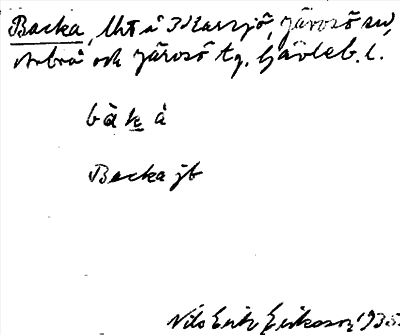 Backa, lht i Klarsjö, Järvsö sn,
Arbrå och Järvsö tg. Gävleb. l.
bàkå
Backa jb
Nils Erik Eriksson 1935.